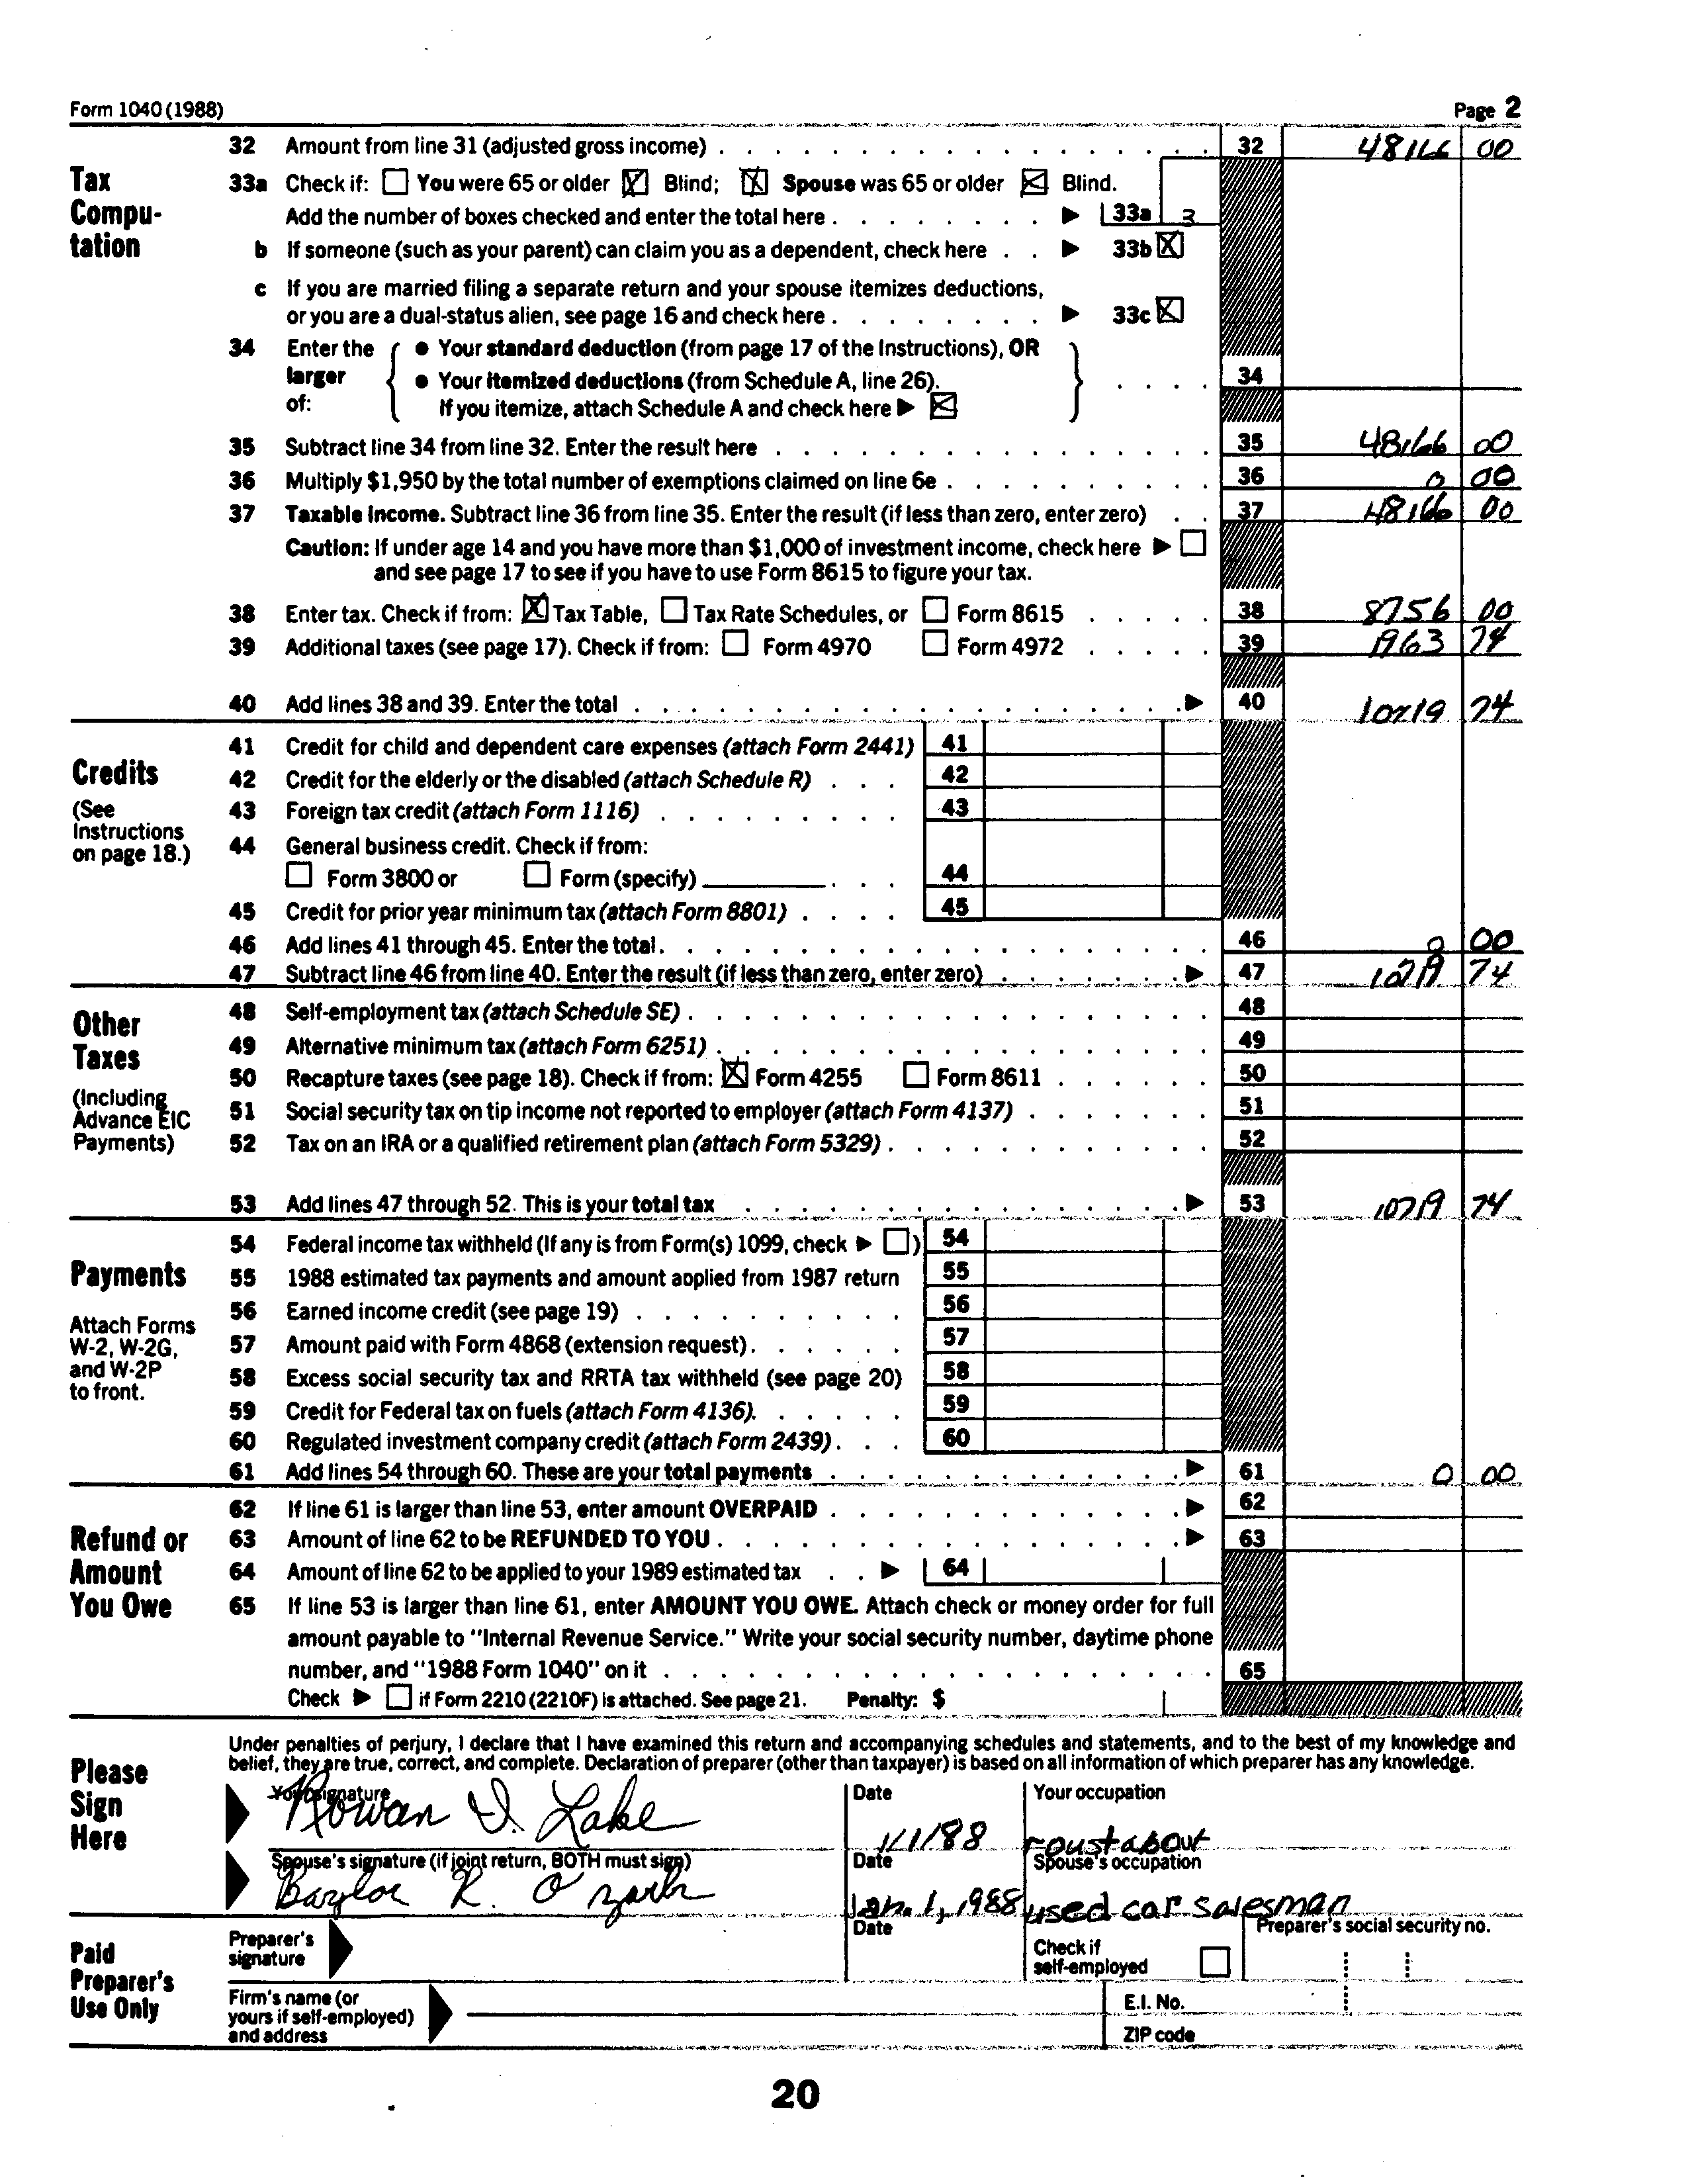 Form 1040 (1988) Page 2
32 Amount from line 31 (adjusted gross income) 32 48166 00
Tax Computation
33a Check if: You were 65 or older Blind; Spouse was 65 or older Blind.
Add the number of boxes checked and enter the total here 33a 3
b If someone (such as your parent) can claim you as a dependent, check here 33b
c If you are married filing a separate return and your spouse itemizes deductions,
or you are a dual-status alien, see page 16 and check here 33c
34 Enter the larger of: • Your standard deduction (from page 17 of the Instructions), OR
• Your itemized deductions (from Schedule A, line 26). 34
If you itemize, attach Schedule A and check here
35 Subtract line 34 from line 32. Enter the result here 35 48166 00
36 Multiply $1,950 by the total number of exemptions claimed on line 6e 36 0 00
37 Taxable income. Subtract line 36 from line 35. Enter the result (if less than zero, enter zero) 37 48166 00
Caution: If under age 14 and you have more than $1,000 of investment income, check here
and see page 17 to see if you have to use Form 8615 to figure your tax.
38 Enter tax. Check if from: X Tax Table, Tax Rate Schedules, or Form 8615 38 8756 00
39 Additional taxes (see page 17). Check if from: Form 4970 Form 4972 39 1963 74
40 Add lines 38 and 39. Enter the total 40 10719 74
Credits
(See Instructions on page 18.)
41 Credit for child and dependent care expenses (attach Form 2441) 41
42 Credit for the elderly or the disabled (attach Schedule R) 42
43 Foreign tax credit (attach Form 1116) 43
44 General business credit. Check if from:
Form 3800 or Form (specify) 44
45 Credit for prior year minimum tax (attach Form 8801) 45
46 Add lines 41 through 45. Enter the total 46 0 00
47 Subtract line 46 from line 40. Enter the result (if less than zero, enter zero) 47 10719 74
Other Taxes
(Including Advance EIC Payments)
48 Self-employment tax (attach Schedule SE) 48
49 Alternative minimum tax (attach Form 6251) 49
50 Recapture taxes (see page 18). Check if from: X Form 4255 Form 8611 50
51 Social security tax on tip income not reported to employer (attach Form 4137) 51
52 Tax on an IRA or a qualified retirement plan (attach Form 5329) 52
53 Add lines 47 through 52. This is your total tax 53 10719 74
Payments
Attach Forms W-2, W-2G, and W-2P to front.
54 Federal income tax withheld (If any is from Form(s) 1099, check ) 54
55 1988 estimated tax payments and amount applied from 1987 return 55
56 Earned income credit (see page 19) 56
57 Amount paid with Form 4868 (extension request) 57
58 Excess social security tax and RRTA tax withheld (see page 20) 58
59 Credit for Federal tax on fuels (attach Form 4136) 59
60 Regulated investment company credit (attach Form 2439) 60
61 Add lines 54 through 60. These are your total payments 61 0 00
Refund or Amount You Owe
62 If line 61 is larger than line 53, enter amount OVERPAID 62
63 Amount of line 62 to be REFUNDED TO YOU 63
64 Amount of line 62 to be applied to your 1989 estimated tax 64
65 If line 53 is larger than line 61, enter AMOUNT YOU OWE. Attach check or money order for full
amount payable to "Internal Revenue Service." Write your social security number, daytime phone
number, and "1988 Form 1040" on it 65
Check if Form 2210 (2210F) is attached. See page 21. Penalty: $
Please Sign Here
Under penalties of perjury, I declare that I have examined this return and accompanying schedules and statements, and to the best of my knowledge and
belief, they are true, correct, and complete. Declaration of preparer (other than taxpayer) is based on all information of which preparer has any knowledge.
Your signature Date Your occupation
Rowan D. Lake 1/1/88 roustabout
Spouse's signature (if joint return, BOTH must sign) Date Spouse's occupation
Baylor R. Jan. 1, 1988 used car salesman
Paid Preparer's Use Only
Preparer's signature Date Check if self-employed Preparer's social security no.
Firm's name (or yours if self-employed) and address E.I. No.
ZIP code
20